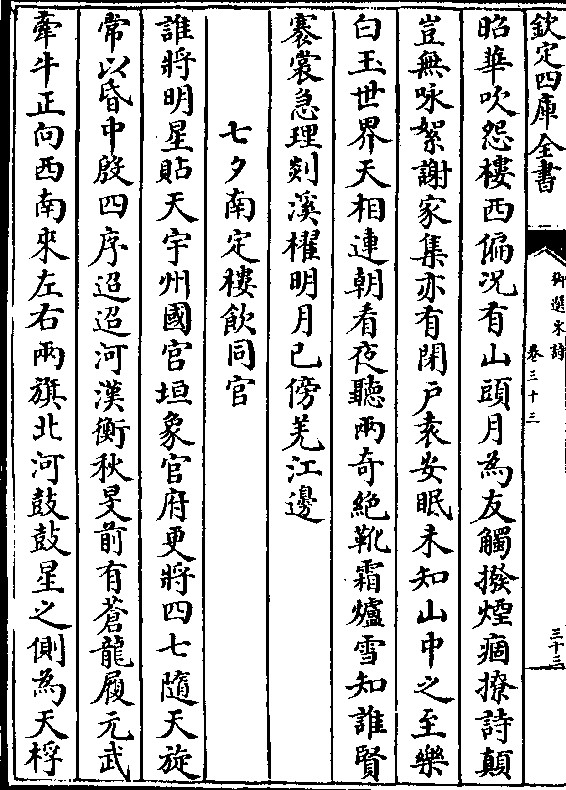 欽定四庫全書
御選宋詩
卷三十三
三十三
昭華吹怨樓西偏况有山頭月為友觸撥煙痼撩詩顛
豈無咏絮謝家集亦有閉戶袁安眠未知山中之至樂
白玉世界天相連朝看夜聽兩奇絶靴霜爐雪知誰賢
褰裳急理剡溪櫂明月已傍羌江邊
七夕南定樓飲同官
誰將明星貼天宇州國宫垣象官府更將四七隨天旋
常以昏中殷四序迢迢河漢衡秋旻前有蒼龍履元武
牽牛正向西南來左右兩旗北河鼓鼓星之側為天桴